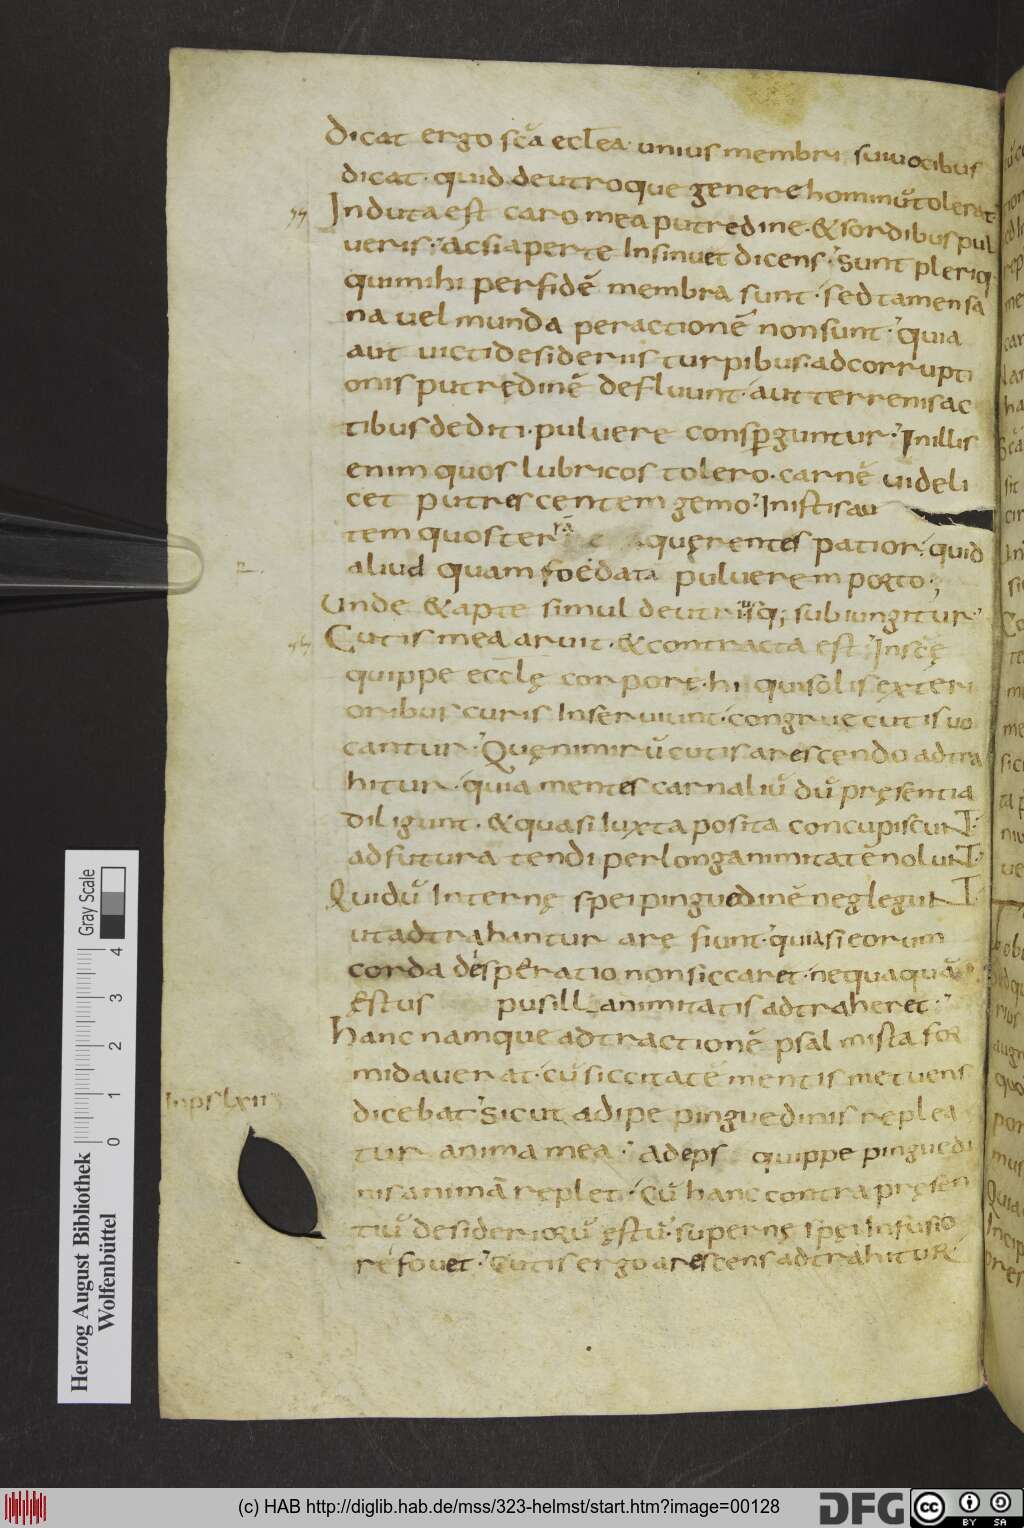 Dicat ergo scā ecclea. unius membri sui uocibus
dicat. quid deutroque genere hominū tolerat
Induta est caro mea putredine. & sordibus pul
ueris. Ac si aperte Insinuet dicens. Sunt pleriq.
qui mihi per fidē membra sunt. sed tamen sa
na uel munda per actionē non sunt. quia
aut uicti desideriis turpibus. ad corrupti
onis putrędinē defluunt. aut terrenis ac
tibus dediti. puluere conspguntur. In illis
enim quos lubricos tolero. carnē uideli
cet putrescentem gemo. In istis au
tem quos terrā quęrentes patior. quid
aliud quam foedata puluerem porto;
Unde & apte simul de utrisq; subiungitur.
Cutis mea aruit. & contracta est. In scę
quippe ecclę corpore. hi qui solis exteri
oribus curis Inseruiunt. congrue cutis uo
cantur. Quę nimirū cutis arescendo adtra
hitur. quia mentes carnaliū dū pręsentia
diligunt. & quasi Iuxta posita concupiscunt.
ad futura tendi per longanimitatē nolunt.
Qui dū Internę spei pinguedinē neglegunt
ut adtrahantur arę fiunt. quia si eorum
corda desperatio non siccaret. nequaquā
ęstus pusillanimitatis adtraheret.
Hanc namque adtractionē psalmista for
midauerat. cū siccitatē mentis metuens
dicebat. Sicut adipe pinguedinis replea
Inps lxii
tur anima mea. Adeps quippe pinguedi
nis animā replet. Cū hanc contra pręsen
tiū desideriorū ęstū. supernę spei Infusio
refouet. Cutis ergo arescens adtrahitur
Herzog August Bibliothek
Wolfenbüttel
0 1 2 3 4
Gray Scale
(c) HAB http://diglib.hab.de/mss/323-helmst/start.htm?image=00128
DFG
cc BY SA